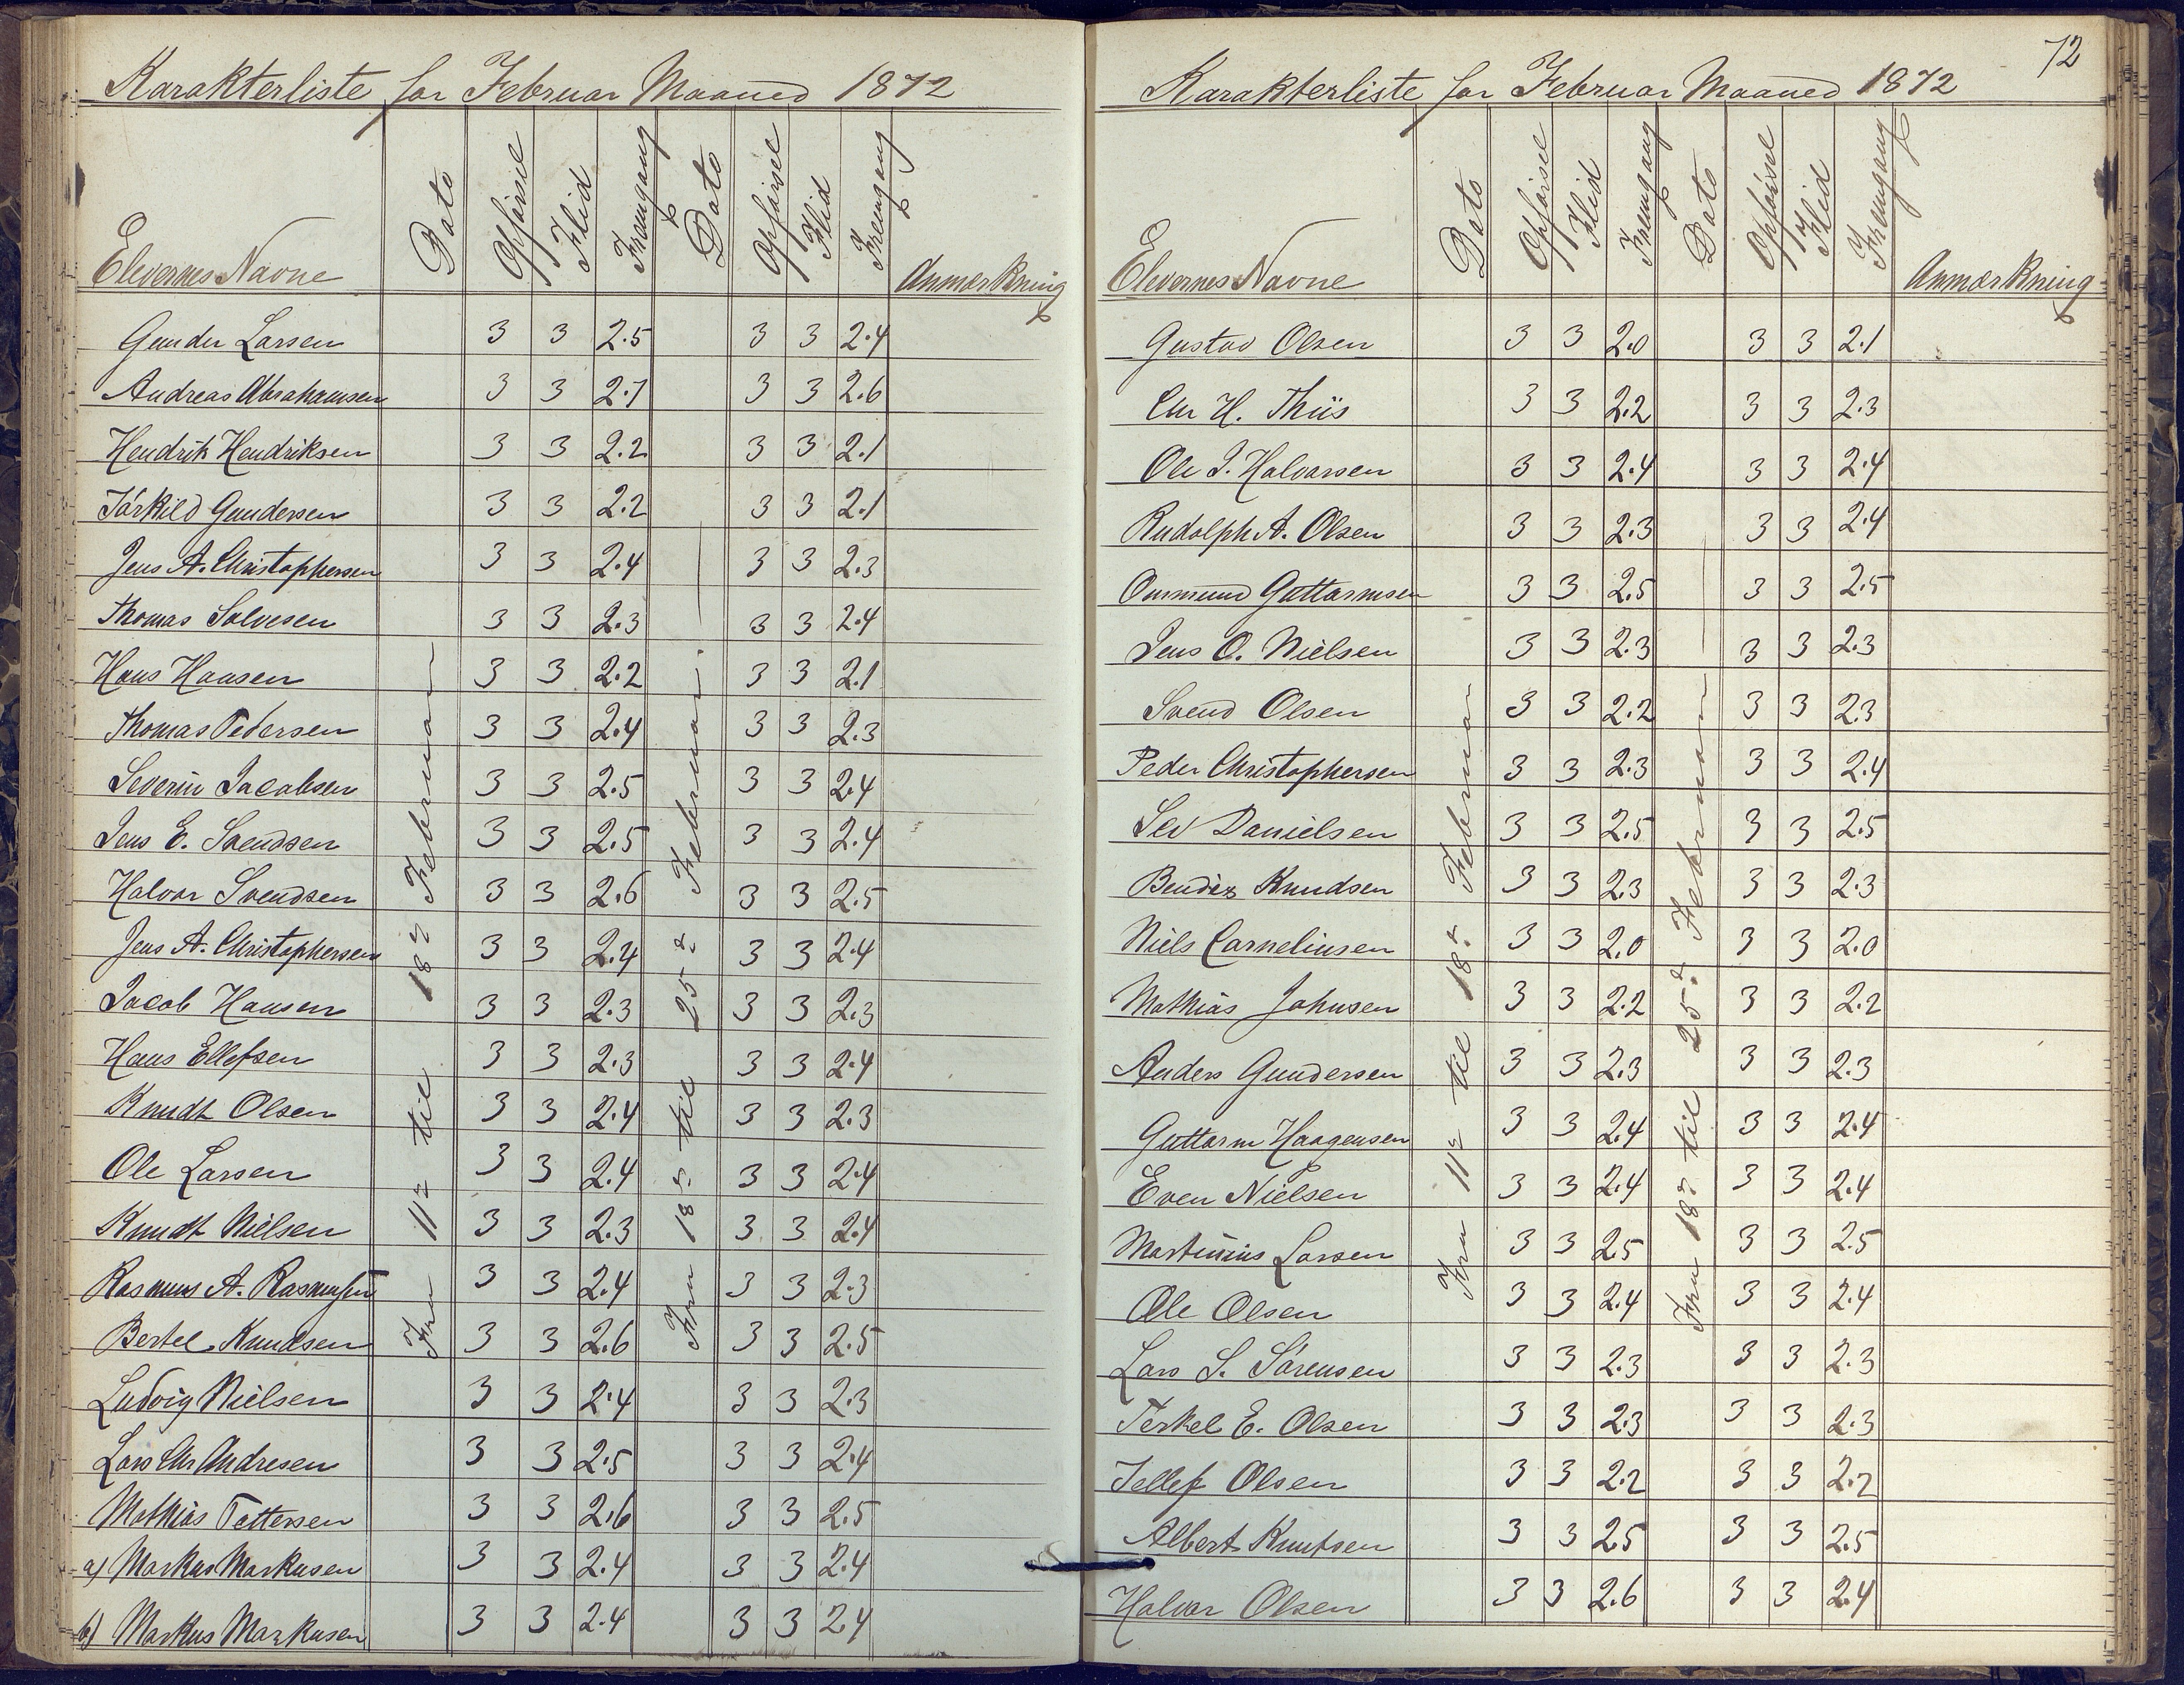 Karakterliste for Februar Maaned 1872
Elevernes Navne Dato Opførsel Flid Fremgang Dato Opførsel Flid Fremgang Anmærkning
Fra 11te til 18de Februar
Fra 18de til 25de Februar
Gunder Larsen 3 3 2.5 3 3 2.4
Andreas Abrahamsen 3 3 2.7 3 3 2.6
Hendrik Hendriksen 3 3 2.2 3 3 2.1
Tørkild Gundersen 3 3 2.2 3 3 2.1
Jens A. Christophersen 3 3 2.4 3 3 2.3
Thomas Solvesen 3 3 2.3 3 3 2.4
Hans Haasen 3 3 2.2 3 3 2.1
Thomas Pedersen 3 3 2.4 3 3 2.3
Severin Jacobsen 3 3 2.5 3 3 2.4
Jens E. Svendsen 3 3 2.5 3 3 2.4
Halvor Svendsen 3 3 2.6 3 3 2.5
Jens A. Christophersen 3 3 2.4 3 3 2.4
Jacob Hansen 3 3 2.3 3 3 2.3
Hans Ellefsen 3 3 2.3 3 3 2.4
Knudt Olsen 3 3 2.4 3 3 2.3
Ole Larsen 3 3 2.4 3 3 2.4
Knudt Nielsen 3 3 2.3 3 3 2.4
Rasmus A. Rasmusen 3 3 2.4 3 3 2.3
Bertel Knudsen 3 3 2.6 3 3 2.5
Ludvig Nielsen 3 3 2.4 3 3 2.3
Lars Chr Andresen 3 3 2.5 3 3 2.4
Mathias Tettersen 3 3 2.6 3 3 2.5
a) Markus Markusen 3 3 2.4 3 3 2.4
b) Markus Markusen 3 3 2.4 3 3 2.4
72
Karakterliste for Februar Maaned 1872
Elevernes Navne Dato Opførsel Flid Fremgang Dato Opførsel Flid Fremgang Anmærkning
Fra 11te til 18de Februar
Fra 18de til 25de Februar
Gustav Olsen 3 3 2.0 3 3 2.1
Chr H. Thiis 3 3 2.2 3 3 2.3
Ole J. Halvorsen 3 3 2.4 3 3 2.4
Rudolph A. Olsen 3 3 2.3 3 3 2.4
Ommund Guttormsen 3 3 2.5 3 3 2.5
Jens O. Nielsen 3 3 2.3 3 3 2.3
Svend Olsen 3 3 2.2 3 3 2.3
Peder Christophersen 3 3 2.3 3 3 2.4
Sev Danielsen 3 3 2.5 3 3 2.5
Bendix Knudsen 3 3 2.3 3 3 2.3
Niels Corneliusen 3 3 2.0 3 3 2.0
Mathias Johnsen 3 3 2.2 3 3 2.2
Anders Gundersen 3 3 2.3 3 3 2.3
Guttorm Haagensen 3 3 2.4 3 3 2.4
Even Nielsen 3 3 2.4 3 3 2.4
Martinius Larsen 3 3 2.5 3 3 2.5
Ole Olsen 3 3 2.4 3 3 2.4
Lars S. Sørensen 3 3 2.3 3 3 2.3
Terkel E. Olsen 3 3 2.3 3 3 2.3
Tellef Olsen 3 3 2.2 3 3 2.2
Albert Knutsen 3 3 2.5 3 3 2.5
Halvor Olsen 3 3 2.6 3 3 2.4